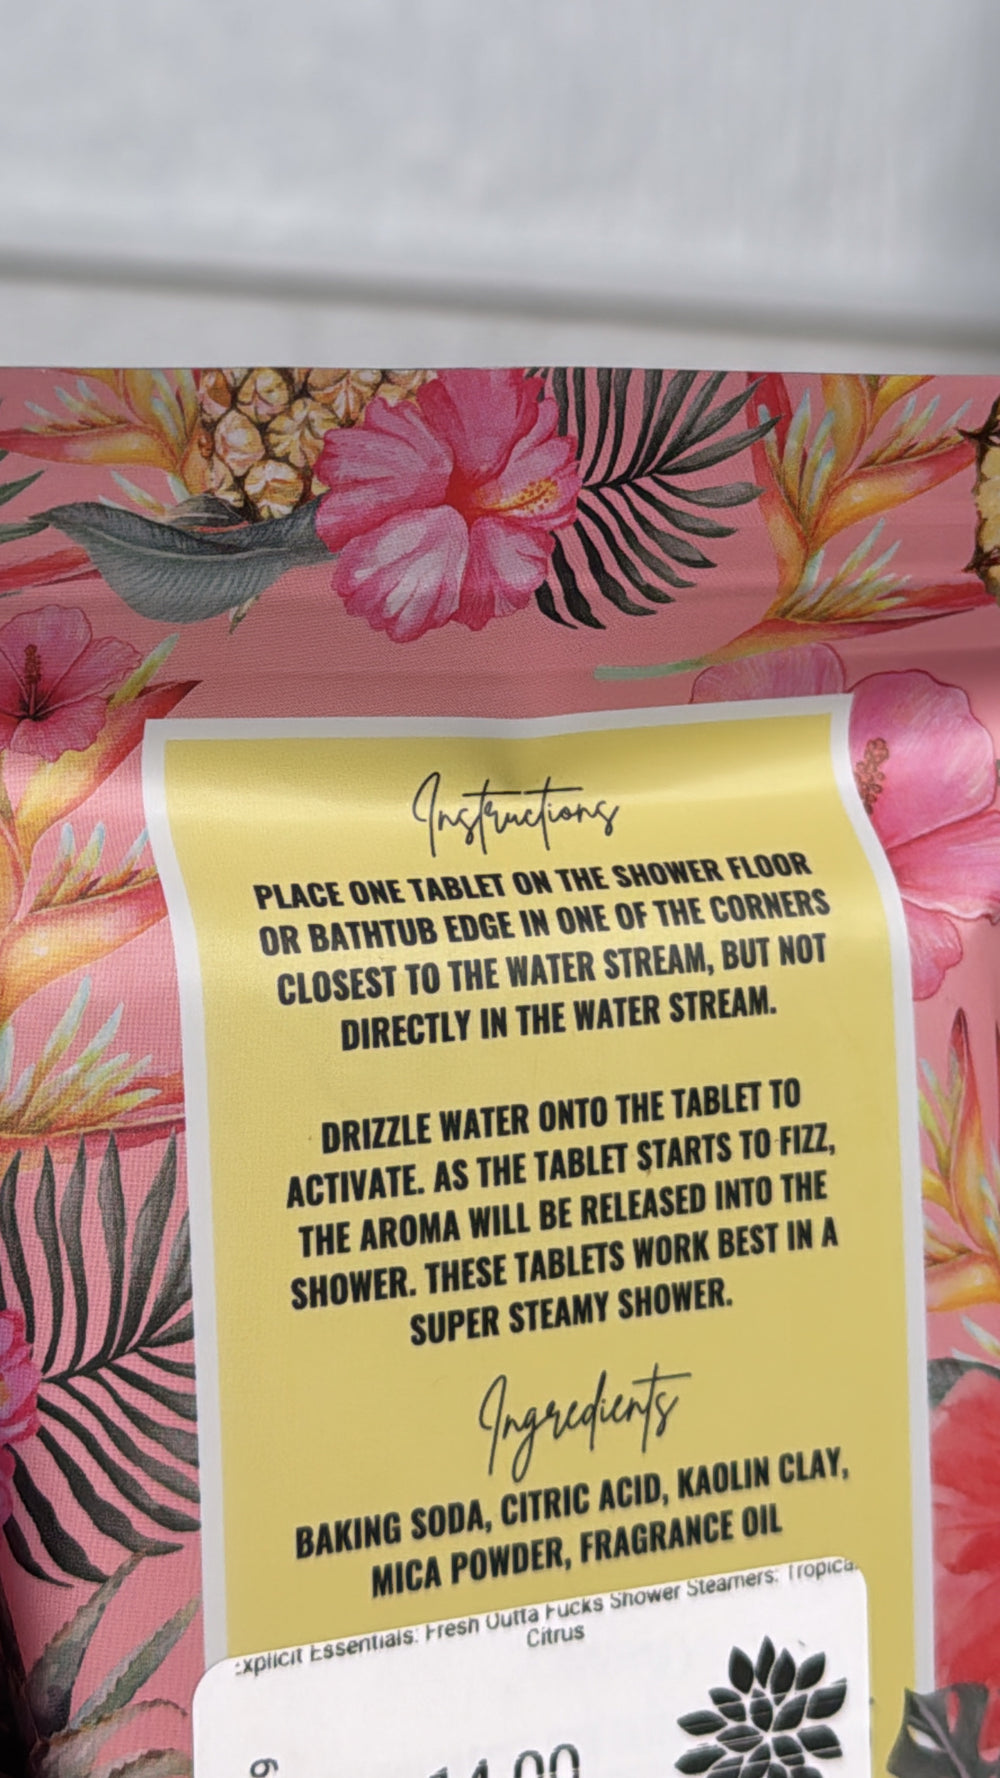 Instructions
PLACE ONE TABLET ON THE SHOWER FLOOR
OR BATHTUB EDGE IN ONE OF THE CORNERS
CLOSEST TO THE WATER STREAM, BUT NOT
DIRECTLY IN THE WATER STREAM.
DRIZZLE WATER ONTO THE TABLET TO
ACTIVATE. AS THE TABLET STARTS TO FIZZ,
THE AROMA WILL BE RELEASED INTO THE
SHOWER. THESE TABLETS WORK BEST IN A
SUPER STEAMY SHOWER.
Ingredients
BAKING SODA, CITRIC ACID, KAOLIN CLAY,
MICA POWDER, FRAGRANCE OIL
Explicit Essentials: Fresh Outta Fucks Shower Steamers: Tropical
Citrus
14.00